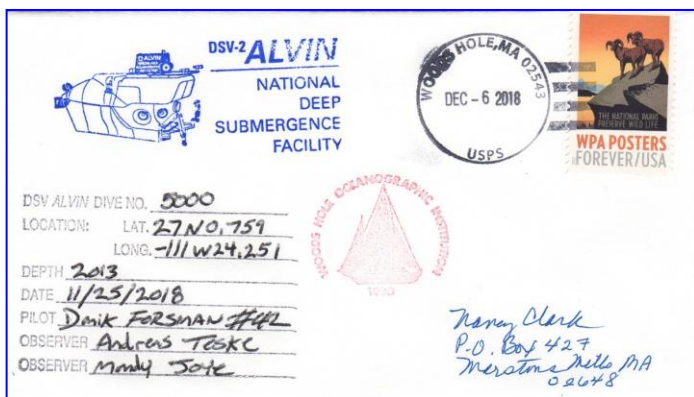 DSV-2 ALVIN
NATIONAL
DEEP
SUBMERGENCE
FACILITY
WOODS HOLE, MA 02543
DEC - 6 2018
USPS
THE NATIONAL PARKS
PRESERVE WILD LIFE
WPA POSTERS
FOREVER/USA
DSV ALVIN DIVE NO. 5000
LOCATION: LAT. 27N0.759
LONG. -111W24.251
DEPTH 2013
DATE 11/25/2018
PILOT FORSMAN #42
OBSERVER Andreas Teske
OBSERVER Mandy Joye
WOODS HOLE OCEANOGRAPHIC INSTITUTION
1930
Nancy Clark
P.O. Box 427
Marstons Mills MA
02648